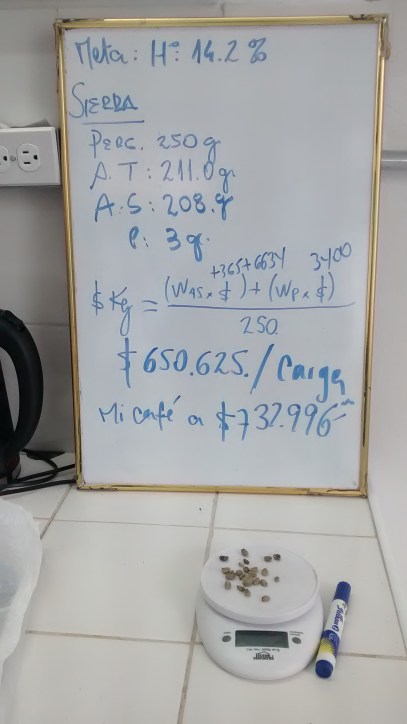 Meta: Hº: 14.2 %
SIERRA
PERG. 250 g
A.T: 211.0 g.
A.S: 208. g
P: 3 g.
+365+6634 3400
$ Kg = (WAS x $) + (WP x $)
250.
$ 650.625. / Carga
Mi café a $ 737.996